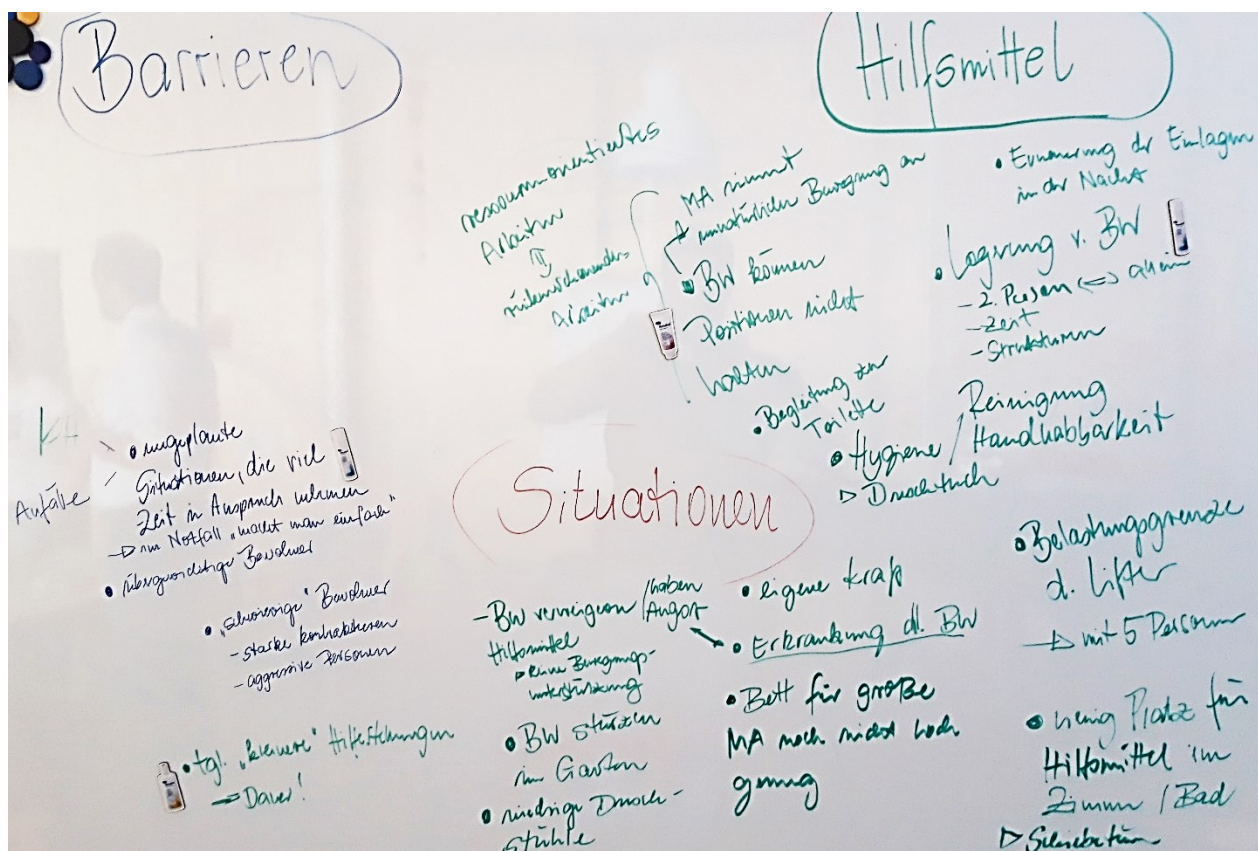 Barrieren
Hilfsmittel
ressourcenorientiertes
Arbeiten
rückenschonendes
Arbeiten
MA nimmt
unnatürliche Bewegung an
• BW können
Positionen nicht
halten
• Erneuerung der Einlagen
in der Nacht
• Lagerung v. BW
- 2. Person <=> allein
- Zeit
- Strukturen
• Begleitung zur
Toilette
• Hygiene / Reinigung
Handhabbarkeit
▷ Duschtuch
KH
Anfälle
• ungeplante
Situationen, die viel
Zeit in Anspruch nehmen
→ im Notfall „macht man einfach"
• übergewichtige Bewohner
• „schwierige" Bewohner
- starke Kontrakturen
- aggressive Personen
• tgl. „kleinere" Hilfestellungen
→ Dauer!
Situationen
- BW verweigern / haben
Angst
Hilfsmittel
▷ keine Bewegungs-
unterstützung
• BW stürzen
im Garten
• niedrige Dusch-
stühle
• eigene Kraft
• Erkrankung d. BW
• Bett für große
MA noch nicht hoch
genug
• Belastungsgrenze
d. Lifter
→ mit 5 Personen
• wenig Platz für
Hilfsmittel im
Zimmer / Bad
▷ Schiebetüren